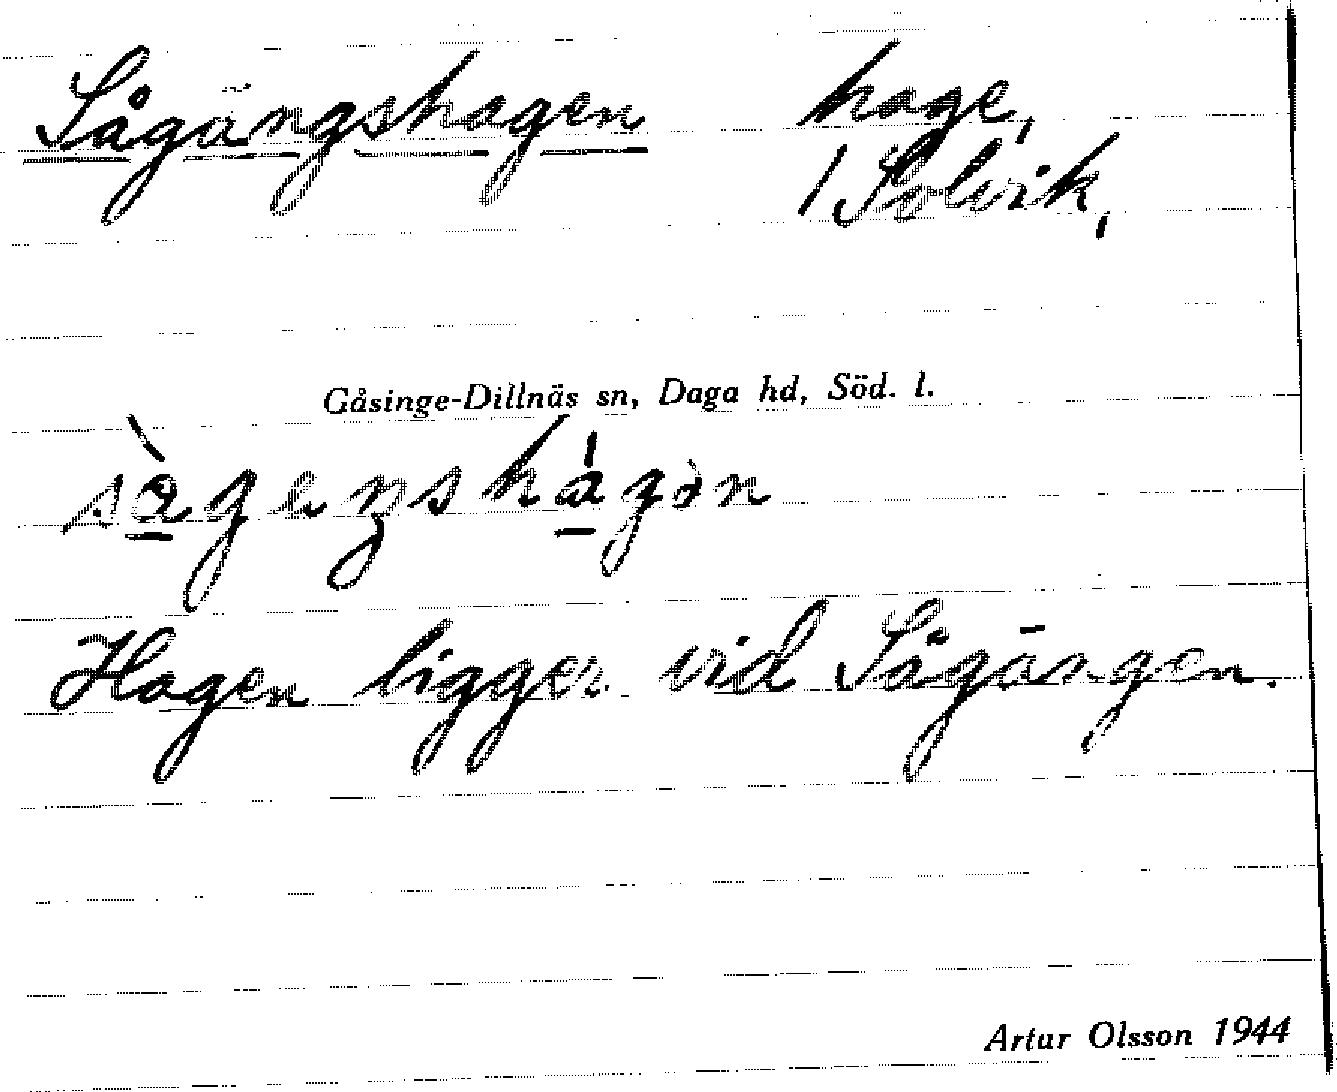 Sågängshagen hage,
1 Solvik,
Gåsinge-Dillnäs sn, Daga hd, Söd. l.
Hagen ligger vid Sågängen.
Artur Olsson 1944